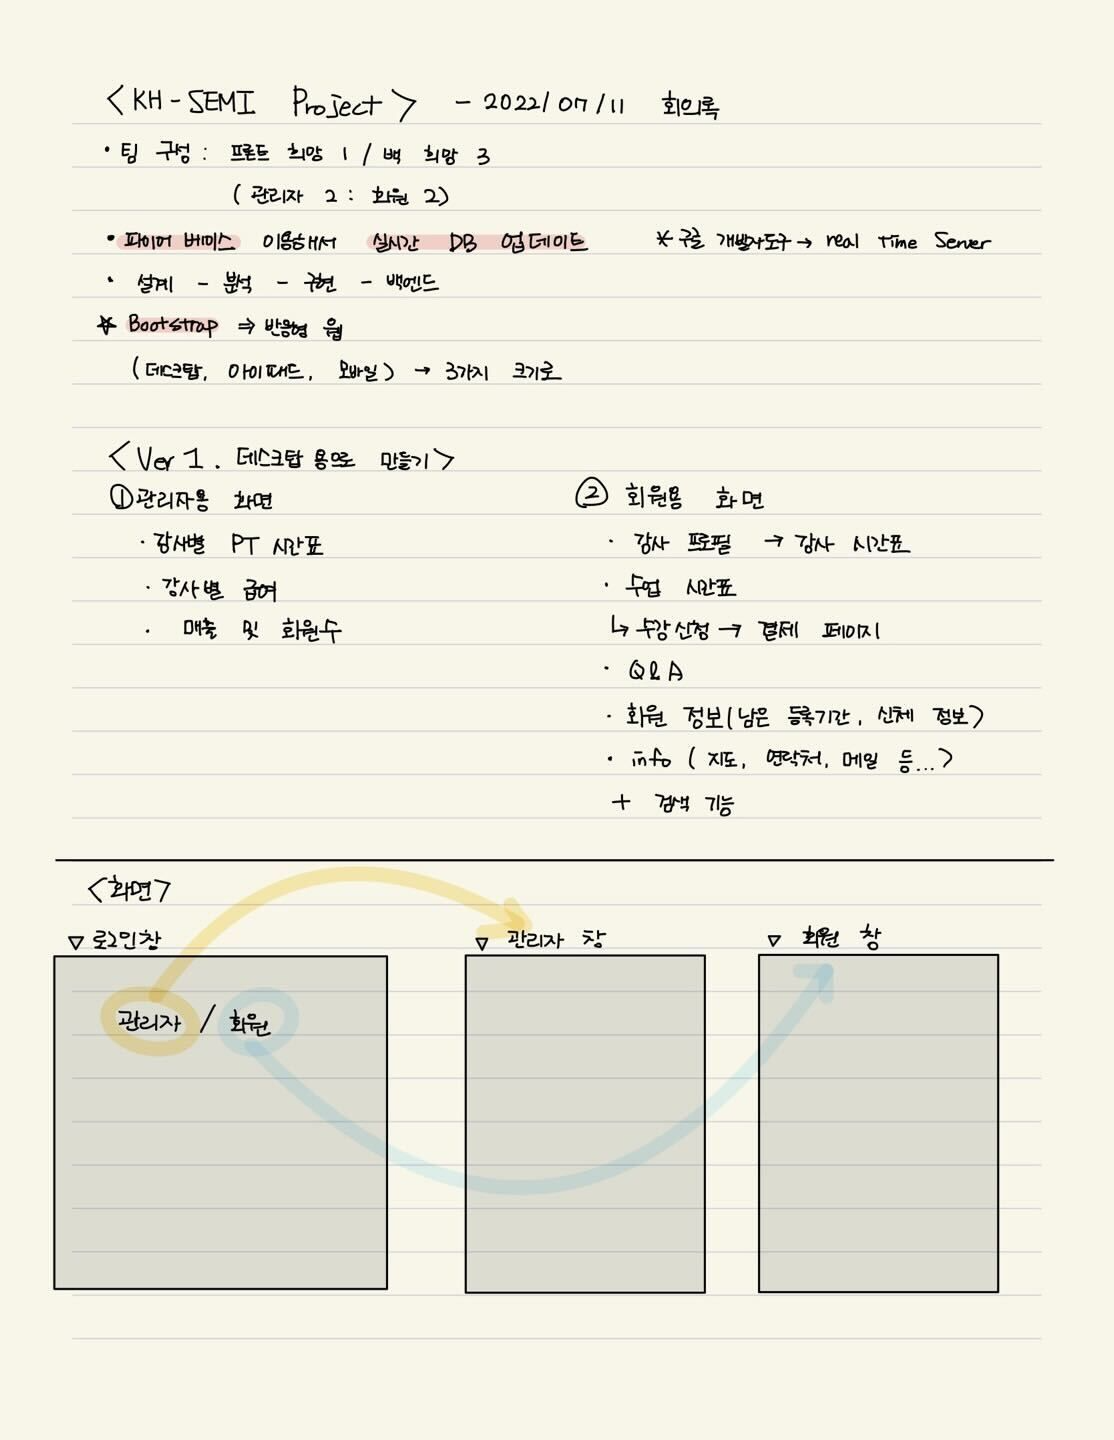 <KH-SEMI Project> - 2022/07/11 회의록
• 팀 구성 : 프론트 희망 1 / 백 희망 3
( 관리자 2 : 회원 2)
• 파이어 베이스 이용해서 실시간 DB 업데이트 * 구글 개발자도구 → real Time Server
• 설계 - 분석 - 구현 - 백엔드
☆ Bootstrap ⇒ 반응형 웹
(데스크탑, 아이패드, 모바일) → 3가지 크기로
<Ver 1. 데스크탑 용으로 만들기>
① 관리자용 화면
· 강사별 PT 시간표
· 강사별 급여
· 매출 및 회원수
② 회원용 화면
· 강사 프로필 → 강사 시간표
· 수업 시간표
↳ 수강신청 → 결제 페이지
· Q&A
· 회원 정보(남은 등록기간, 신체 정보)
· info ( 지도, 연락처, 메일 등...)
+ 검색 기능
<화면>
▽ 로그인창
관리자 / 회원
▽ 관리자 창
▽ 회원 창